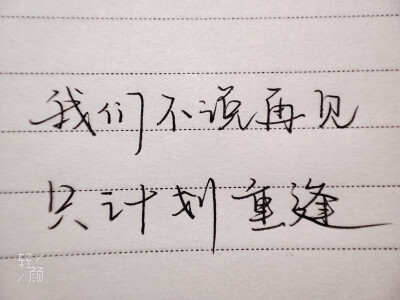 我们不说再见
只计划重逢
轻颜